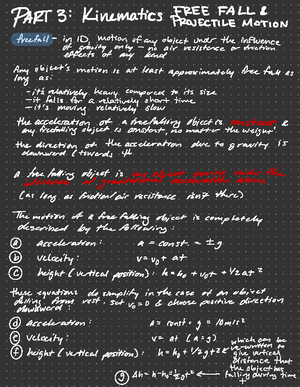 PART 3: Kinematics FREE FALL &
PROJECTILE MOTION
freefall - in 1D, motion of any object under the influence
of gravity only - no air resistance or friction
effects of any kind
Any object's motion is at least approximately free fall as
long as:
- it's relatively heavy compared to its size
- it falls for a relatively short time
- it's moving relatively slow
the acceleration of a freefalling object is constant &
any freefalling object is constant, no matter the weight!
the direction of the acceleration due to gravity is
downward (towards
a free falling object is any object moving under the
influence of gravitational
(as long as friction/air resistance isn't there)
The motion of a free falling object is completely
described by the following:
(a) acceleration: a = const. = ±g
(b) velocity: v = v₀ + at
(c) height (vertical position): h = h₀ + v₀t + 1/2 at²
these equations do simplify in the case of an object
falling from rest. set v₀ = 0 & choose positive direction
downward:
(d) acceleration: a = const = g = 10 m/s²
(e) velocity: v = at (a = g)
(f) height (vertical position): h = h₀ + 1/2 gt²
which can be
re-written to
give vertical
distance that
the object has
fallen during time
(g) Δh = h - h₀ = 1/2 gt²